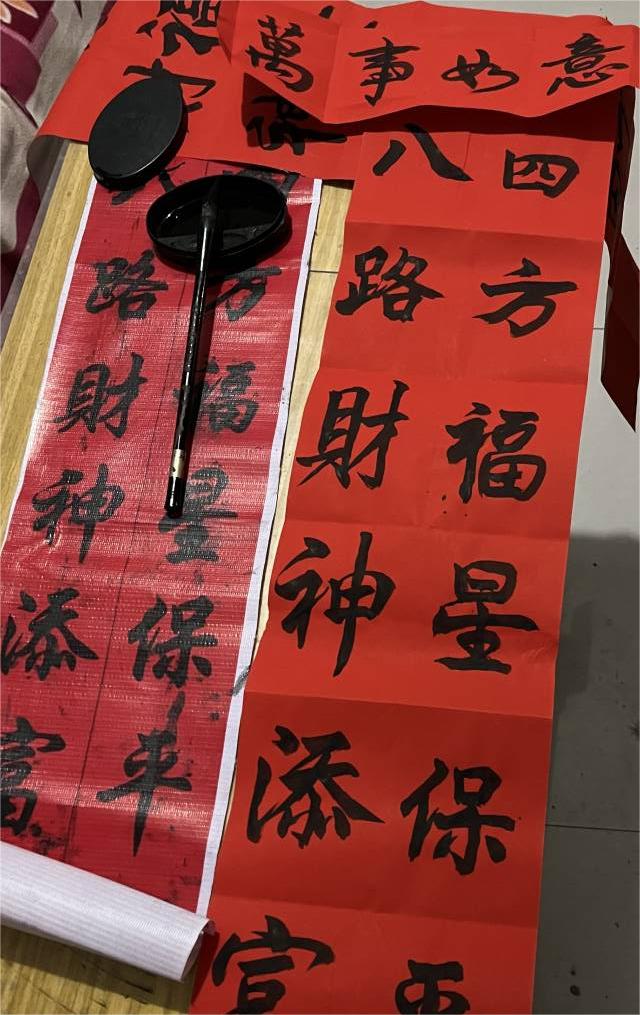 萬事如意
四方福星保
八路財神添
方福星保平
路財神添富